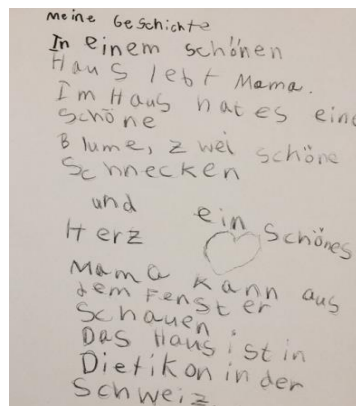 Meine Geschichte
In einem schönen
Haus lebt Mama.
Im Haus hat es eine
schöne
Blume, zwei schöne
Schnecken
und ein schönes
Herz
Mama kann aus
dem Fenster
schauen
Das Haus ist in
Dietikon in der
Schweiz.